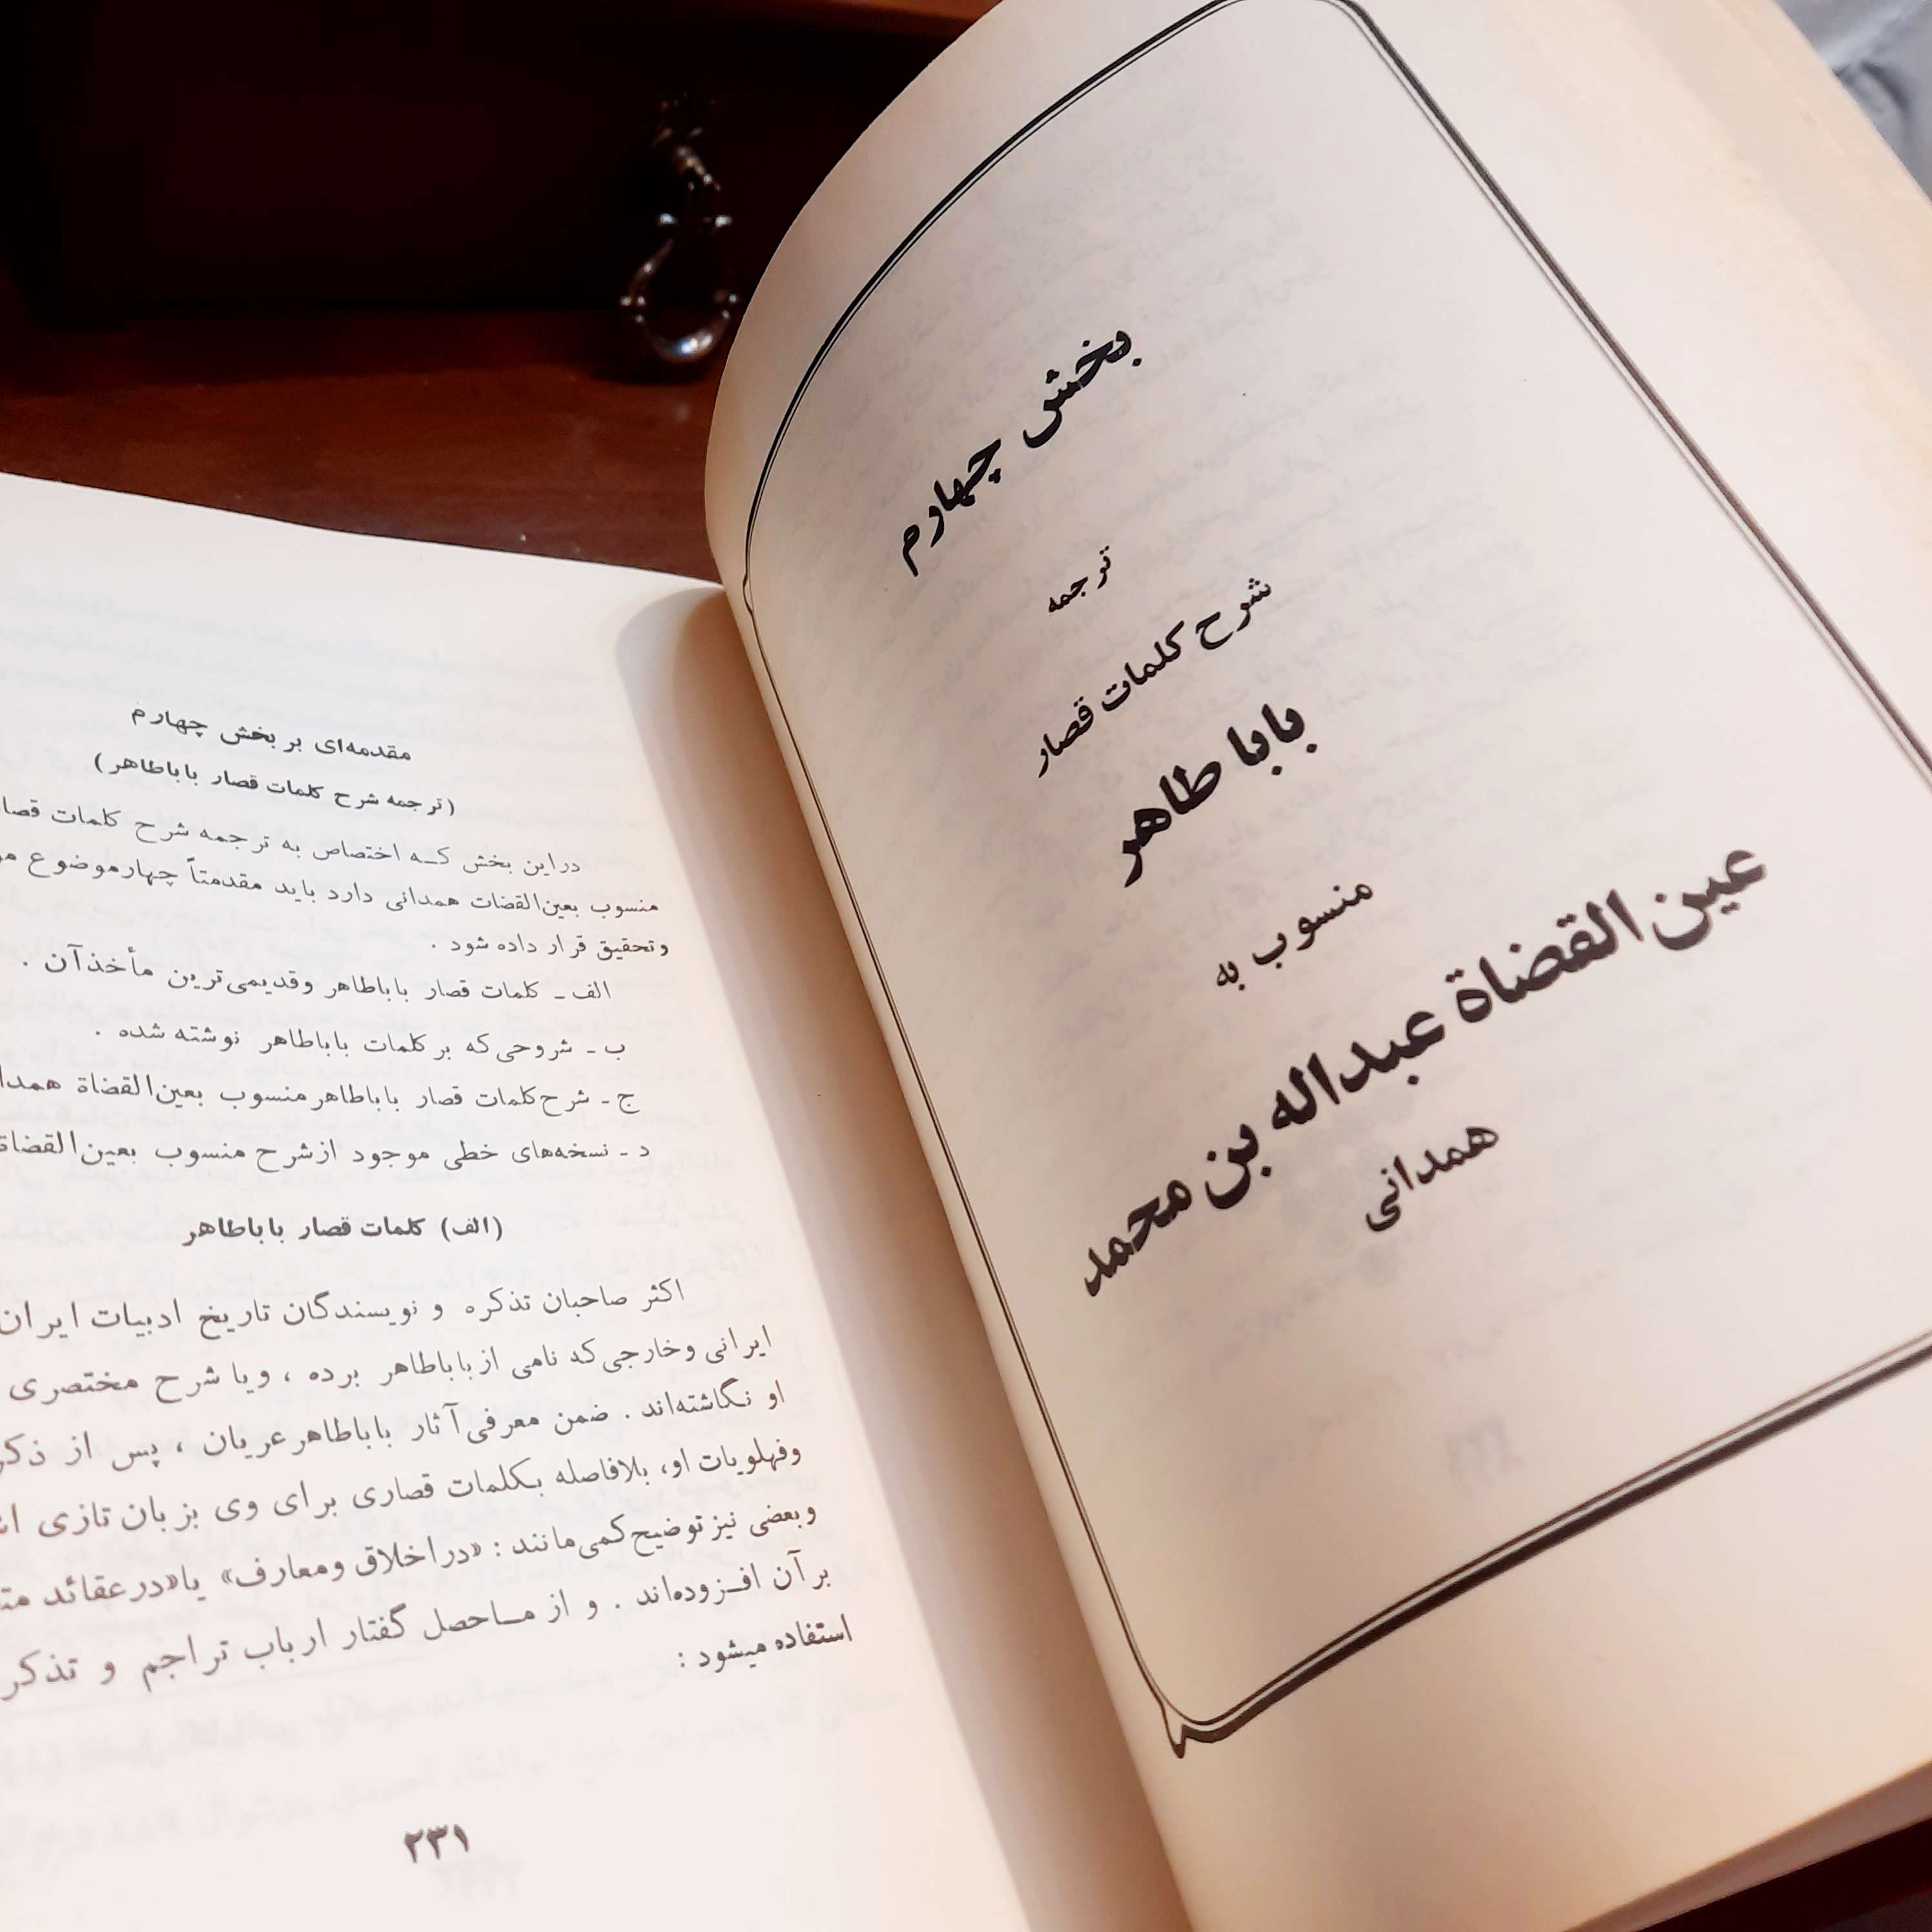 بخش چهارم
ترجمه
شرح کلمات قصار
بابا طاهر
منسوب به
عین القضاة عبداله بن محمد
همدانی
مقدمه‌ای بر بخش چهارم
(ترجمه شرح کلمات قصار باباطاهر)
دراین بخش کـه اختصاص به ترجمه شرح کلمات
منسوب بعین‌القضات همدانی دارد باید مقدمتاً چهارموضوع
وتحقیق قرار داده شود .
الف ـ کلمات قصار باباطاهر وقدیمی‌ترین مأخذآن .
ب ـ شروحی‌که برکلمات باباطاهر نوشته شده .
ج ـ شرح‌کلمات قصار باباطاهرمنسوب بعین‌القضاة
د ـ نسخه‌های خطی موجود ازشرح منسوب بعین‌القضاة
(الف) کلمات قصار باباطاهر
اکثر صاحبان تذکره و نویسندگان تاریخ ادبیات ایران
ایرانی وخارجی‌که نامی ازباباطاهر برده ، ویا شرح مختصری
او نگاشته‌اند . ضمن معرفی‌آثار باباطاهرعریان ، پس از
وفهلویات او، بلافاصله بکلمات قصاری برای وی بزبان تازی
وبعضی نیزتوضیح‌کمی‌مانند : «دراخلاق ومعارف» یا«درعقائد
برآن افـزوده‌اند . و از مـاحصل گفتار ارباب تراجم و
استفاده میشود :
۲۳۱